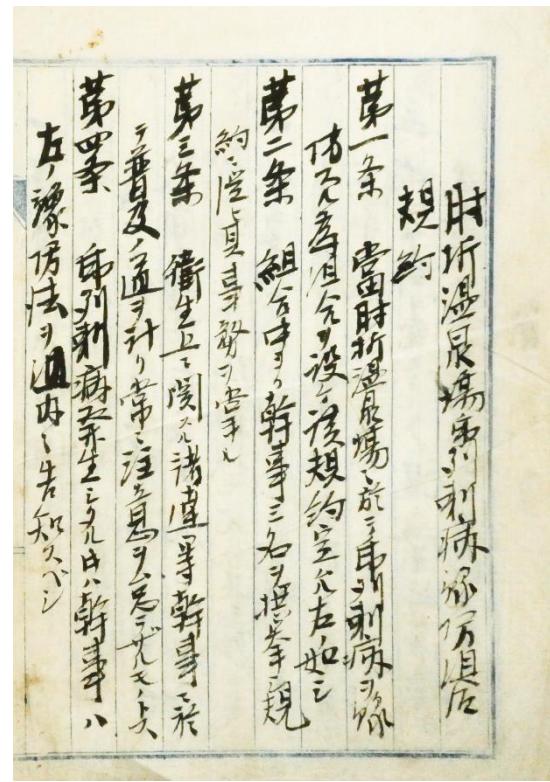 肘折温泉場虎列刺病予防組合
規約
第一条　當肘折温泉場ニ於テ虎列刺病ヲ豫
防スル為組合ヲ設ケ該規約定ル左ノ如シ
第二条　組合中ヨリ幹事三名ヲ撰挙シ規
約ニ従真事務ヲ當ル
第三条　衛生上ニ関スル諸達等幹事ニ於
テ普及ノ道ヲ計リ常ニ注意ヲ怠ラザルモノトス
第四条　虎列刺病発生シタル时ハ幹事ハ
左ノ豫防法ヲ組内ニ告知スベシ